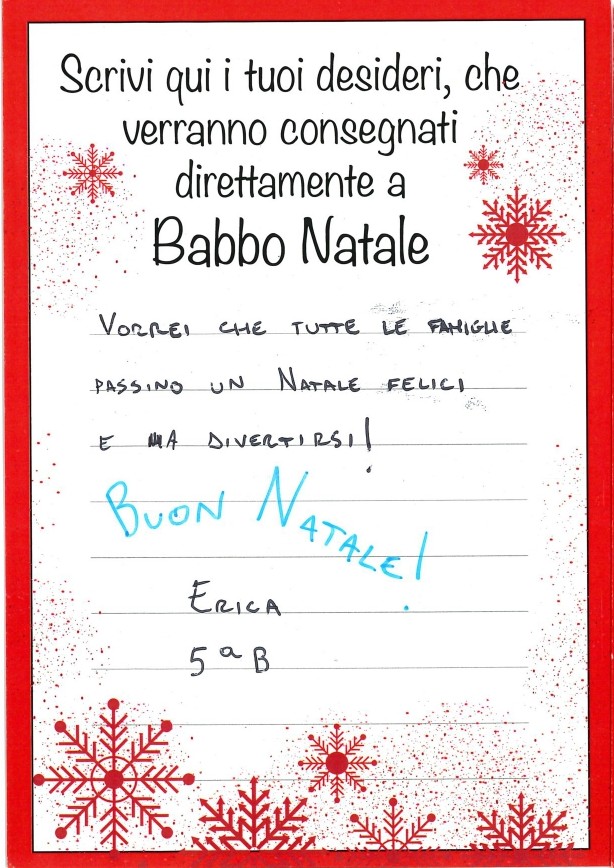 Scrivi qui i tuoi desideri, che
verranno consegnati
direttamente a
Babbo Natale
VORREI CHE TUTTE LE FAMIGLIE
PASSINO UN NATALE FELICI
E MA DIVERTIRSI!
BUON NATALE!
ERICA
5ª B